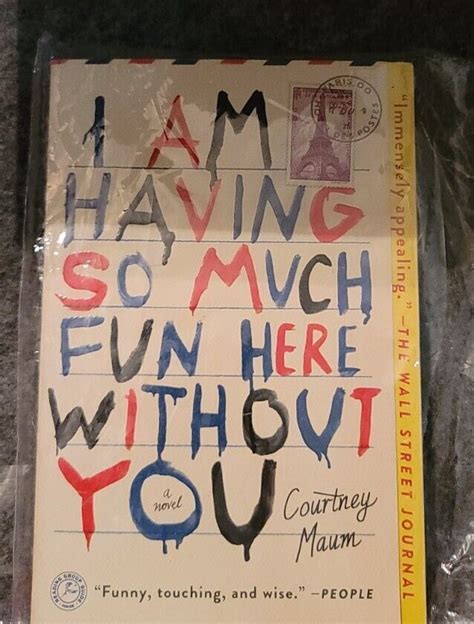 I AM
HAVING
SO MUCH
FUN HERE
WITHOUT
YOU
a
novel
Courtney
Maum
"Funny, touching, and wise." —PEOPLE
"Immensely appealing." —THE WALL STREET JOURNAL
READING GROUP GUIDE
INSIDE